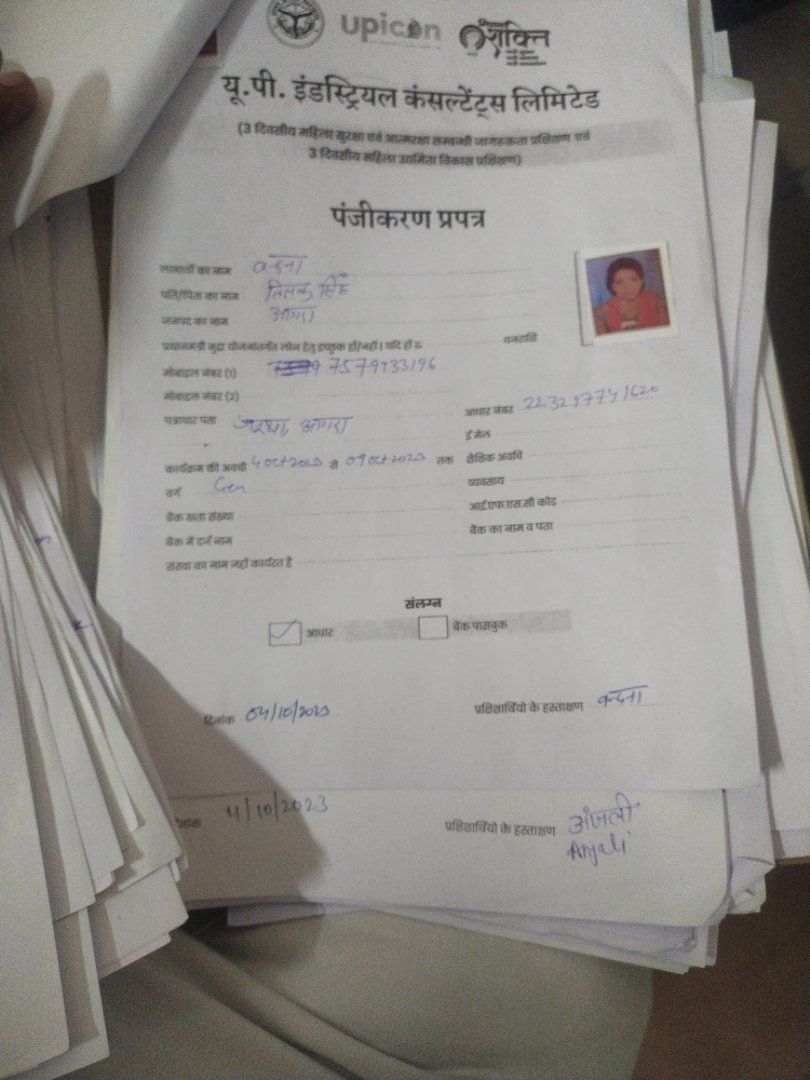 upicon
शक्ति
यू.पी. इंडस्ट्रियल कंसल्टेंट्स लिमिटेड
(3 दिवसीय महिला सुरक्षा एवं आत्मरक्षा सम्बन्धी जागरुकता प्रशिक्षण एवं
3 दिवसीय महिला उद्यमिता विकास प्रशिक्षण)
पंजीकरण प्रपत्र
लाभार्थी का नाम वन्दना
पति/पिता का नाम तिलक सिंह
जनपद का नाम आगरा
प्रधानमंत्री मुद्रा योजनांतर्गत लोन हेतु इच्छुक हाँ/नहीं। यदि हाँ रु धनराशि
मोबाइल नंबर (1) 7579933196
मोबाइल नंबर (2)
पत्राचार पता आगरा आधार नंबर
ई मेल
कार्यक्रम की अवधी 4 Oct 2023 से 09 Oct 2023 तक शैक्षिक अवधि
वर्ग Gen व्यवसाय
बैंक खाता संख्या आई.एफ.एस.सी कोड
बैंक में दर्ज नाम बैंक का नाम व पता
संस्था का नाम जहाँ कार्यरत है
संलग्न
आधार बैंक पासबुक
दिनांक 04/10/2023 प्रशिक्षार्थियो के हस्ताक्षण वन्दना
4/10/2023 प्रशिक्षार्थियो के हस्ताक्षण अंजली
Anjali